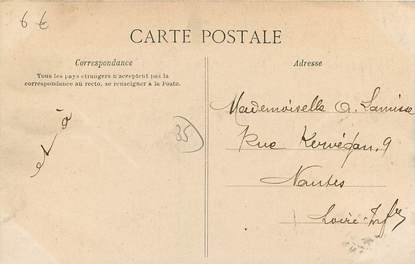 6 €
CARTE POSTALE
Correspondance
Tous les pays étrangers n'acceptent pas la
correspondance au recto, se renseigner à la Poste.
et à
35
Adresse
Mademoiselle A.
Rue Kervégan, 9
Nantes
Loire-Infre